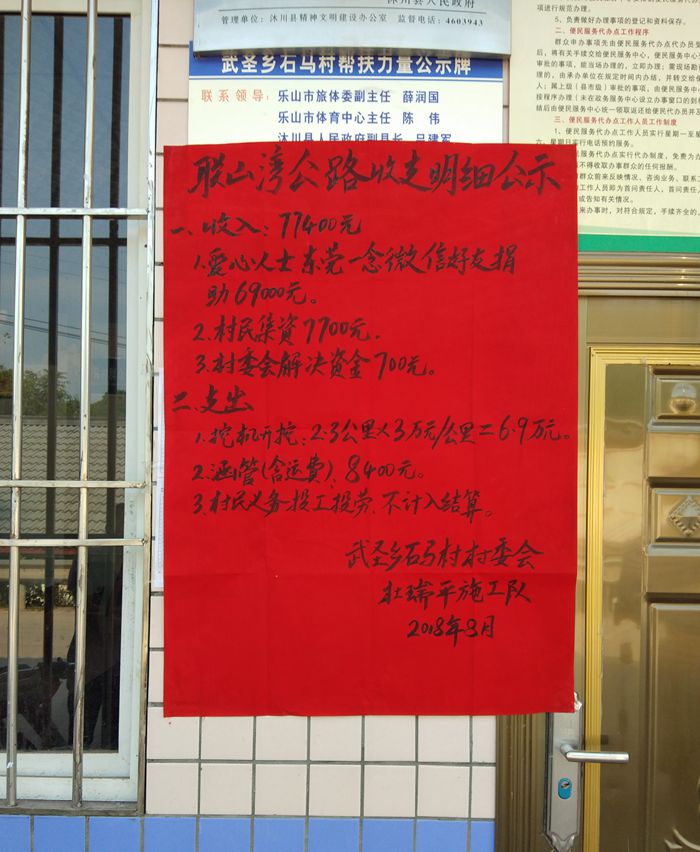 沐川县人民政府
管理单位：沐川县精神文明建设办公室 监督电话：4603943
武圣乡石马村帮扶力量公示牌
联系领导：乐山市旅体委副主任 薛润国
乐山市体育中心主任 陈 伟
沐川县人民政府副县长 吕建军
联山湾公路收支明细公示
一、收入：77400元
1.爱心人士东莞一念微信好友捐
助69000元。
2.村民集資7700元.
3.村委会解决资金700元。
二.支出
1.挖机开挖：2.3公里×3万元/公里=6.9万元。
2.涵管(含运费)：8400元。
3.村民义务投工投劳.不计入结算。
武圣乡石马村村委会
杜瑞平施工队
2018年8月
项进行规范办理。
5、负责做好办理事项的登记和资料保存。
二、便民服务代办点工作程序
群众申办事项先由便民服务代办点代办员受
后，将有关手续交给便民服务中心，便民服务中心
审批的事项，能当场办理的，立即办理；需现场勘
理的，由承办单位在规定时间内办结，并转交给便
人；属上级（县市级）审批的事项，由便民服务中
按程序办理（未在政务服务中心设立办事窗口的到
结后由便民服务中心统一领取返还给便民代办员并
三、便民服务代办点工作人员工作制度
1、便民服务代办点工作人员实行星期一至星
六、星期日实行电话预约服务。
民服务代办点实行代办制度，免费为
不得收取办事群众的任何报酬。
群众前来反映情况、咨询业务、联系
工作人员即为首问责任人，首问责任人
或告知有关情况。
来办事时，对符合规定，手续齐全的，